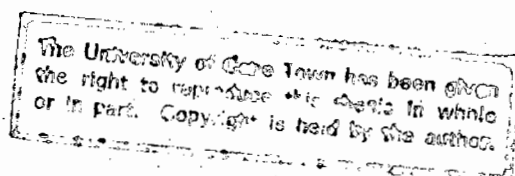 The University of Cape Town has been given
the right to reproduce this thesis in whole
or in part. Copyright is held by the author.